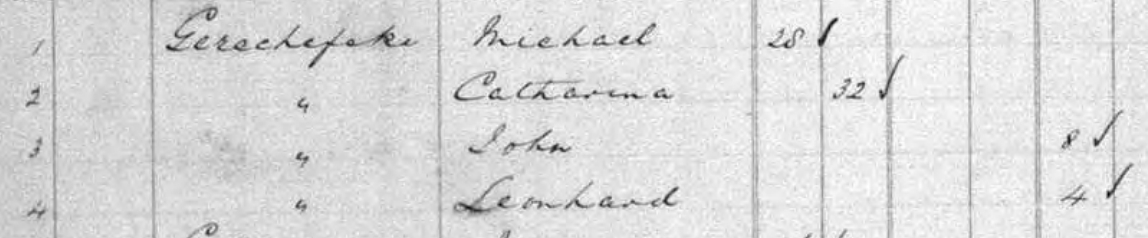 1 Gerschefske Michael 28
2 " Catharina 32
3 " John 8
4 " Leonhard 4